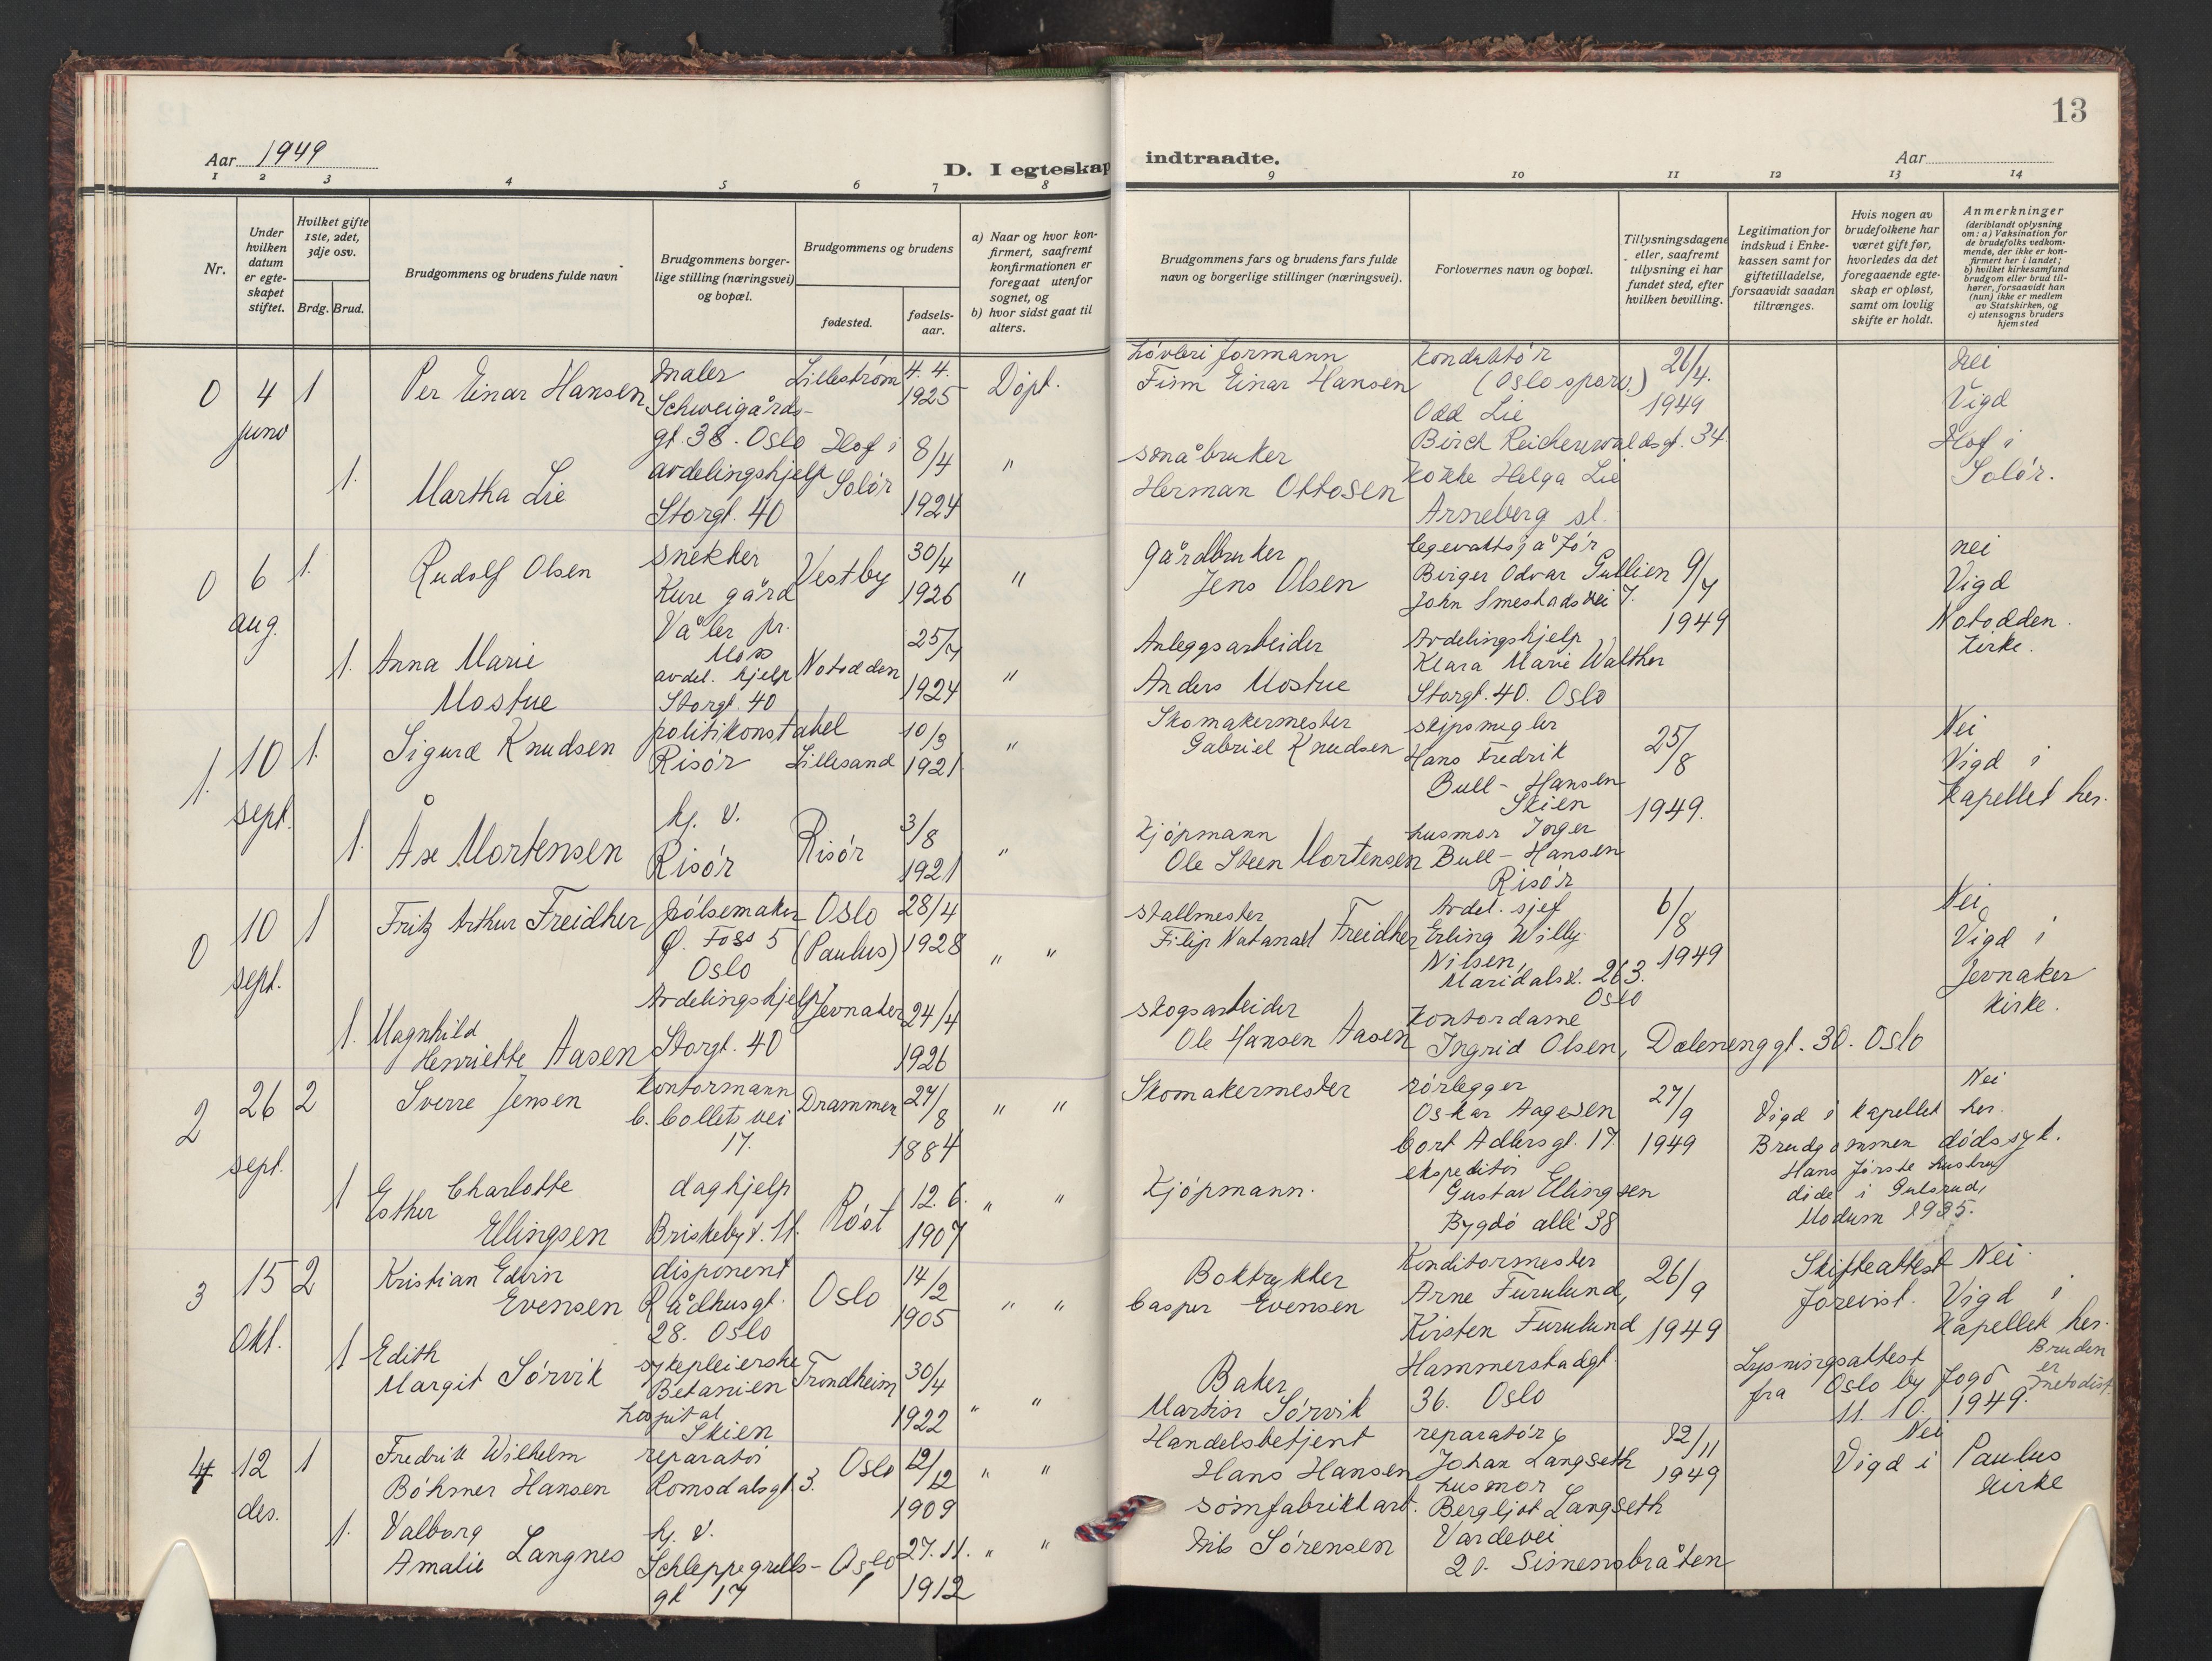 13
Aar 1949
D. I egteskap
indtraadte.
Aar
1 2 3 4 5 6 7 8 9 10 11 12 13 14
Nr.
Under hvilken datum er egteskapet stiftet.
Hvilket gifte 1ste, 2det, 3dje osv.
Brdg. Brud.
Brudgommens og brudens fulde navn
Brudgommens borgerlige stilling (næringsvei) og bopæl.
Brudgommens og brudens
fødested.
fødselsaar.
a) Naar og hvor konfirmert, saafremt konfirmationen er foregaat utenfor sognet, og
b) hvor sidst gaat til alters.
Brudgommens fars og brudens fars fulde navn og borgerlige stillinger (næringsvei).
Forlovernes navn og bopæl.
Tillysningsdagene eller, saafremt tillysning ei har fundet sted, efter hvilken bevilling.
Legitimation for indskud i Enkekassen samt for giftetilladelse, forsaavidt saadan tiltrænges.
Hvis nogen av brudefolkene har været gift før, hvorledes da det foregaaende egteskap er opløst, samt om lovlig skifte er holdt.
Anmerkninger (deriblandt oplysning om: a) Vaksination for de brudefolks vedkommende, der ikke er konfirmert her i landet; b) hvilket kirkesamfund brudgom eller brud tilhører, forsaavidt han (hun) ikke er medlem av Statskirken, og c) utensogns bruders hjemsted
0 4 juni 1
Per Einar Hansen
maler
Schweigårds-
gt. 38. Oslo
Lillestrøm
4. 4.
1925
Døpt.
Høvleriformann
Finn Einar Hansen
Konduktør
(Oslo sporv.)
Odd Lie
Birch Reichenwaldsgt. 34
26/4.
1949
Nei
Vigd
Hof i
Solør.
1.
Martha Lie
avdelingshjelp
Storgt. 40
Hof i
Solør
8/4
1924
"
småbruker
Herman Ottosen
Kokke Helga Lie
Arneberg st.
0 6 aug. 1.
Rudolf Olsen
snekker
Kure gård
Våler pr.
Moss
Vestby
30/4
1926
"
Gårdbruker
Jens Olsen
legevaktsjåfør
Birger Odvar Gullien
John Smestadsvei 7.
9/7
1949
nei
Vigd
Notodden
kirke.
1.
Anna Marie
Mostue
avdel. hjelp
Storgt. 40
Notodden
25/7
1924
"
Anleggsarbeider
Anders Mostue
Avdelingshjelp
Klara Marie Walther
Storgt. 40. Oslo
1. 10 sept. 1.
Sigurd Knudsen
politikonstabel
Risør
Lillesand
10/3
1921
"
Skomakermester
Gabriel Knudsen
skipsmegler
Hans Fredrik
Bull-Hansen
Skien
25/8
1949.
Nei
Vigd i
Kapellet her.
1.
Åse Mortensen
hj. v.
Risør
Risør
3/8
1921
"
Kjøpmann
Ole Steen Mortensen
husmor Inger
Bull-Hansen
Risør
0 10 sept. 1
Fritz Arthur Freidher
pølsemaker
Ø. Foss 5
Oslo
Oslo
(Paulus)
28/4
1928
" "
stallmester
Filip Natanael Freidher
Avdel. sjef
Erling Willy
Nilsen,
Maridalsv. 263.
Oslo
6/8
1949
Nei
Vigd i
Jevnaker
kirke.
1.
Magnhild
Henriette Aasen
Avdelingshjelp
Storgt. 40
Jevnaker
24/4
1926
skogsarbeider
Ole Hansen Aasen
Kontordame
Ingrid Olsen, Dælenenggt. 30. Oslo
2 26 sept. 2
Sverre Jensen
Kontormann
C. Collets vei
17.
Drammen
27/8
1884
" "
Skomakermester
rørlegger
Oskar Aagesen
Cort Adlersgt. 17
27/9
1949
Nei
Vigd i kapellet her.
Brudgommen dødssyk.
Hans første hustru
døde i Gulsrud,
Modum 1935.
1
Esther Charlotte
Ellingsen
daghjelp
Briskebyv. 11.
Røst
12. 6.
1907
" "
Kjøpmann.
ekspeditør
Gustav Ellingsen
Bygdø allé 38
3 15 okt. 2
Kristian Edvin
Evensen
disponent
Rådhusgt.
28. Oslo
Oslo
14/2
1905
" "
Boktrykker
Casper Evensen
Konditormester
Arne Furulund,
Kirsten Furulund
26/9
1949
Skifteattest
forevist.
Nei
Vigd i
Kapellet her.
Bruden
er
metodist.
1
Edith
Margit Sørvik
sykepleierske
Betanien
hospital
Skien
Trondheim
30/4
1922
" "
Baker
Martin Sørvik
Hammerstadgt.
36. Oslo
Lysningsattest
fra Oslo by fogd
11. 10. 1949.
4 12 des. 1
Fredrik Wilhelm
Böhmer Hansen
reparatør
Romsdalsgt. 3.
Oslo
12/12
1909
" "
Handelsbetjent
Hans Hansen
reparatør
Johan Langseth
husmor
Bergljot Langseth
12/11
1949
Nei
Vigd i Paulus
kirke
1.
Valborg
Amalie Langnes
hj. v.
Schleppegrells-
gt 17
Oslo
27. 11.
1912
" "
sømfabrikkarb.
Nils Sørensen
Vardevei
20. Simensbråten